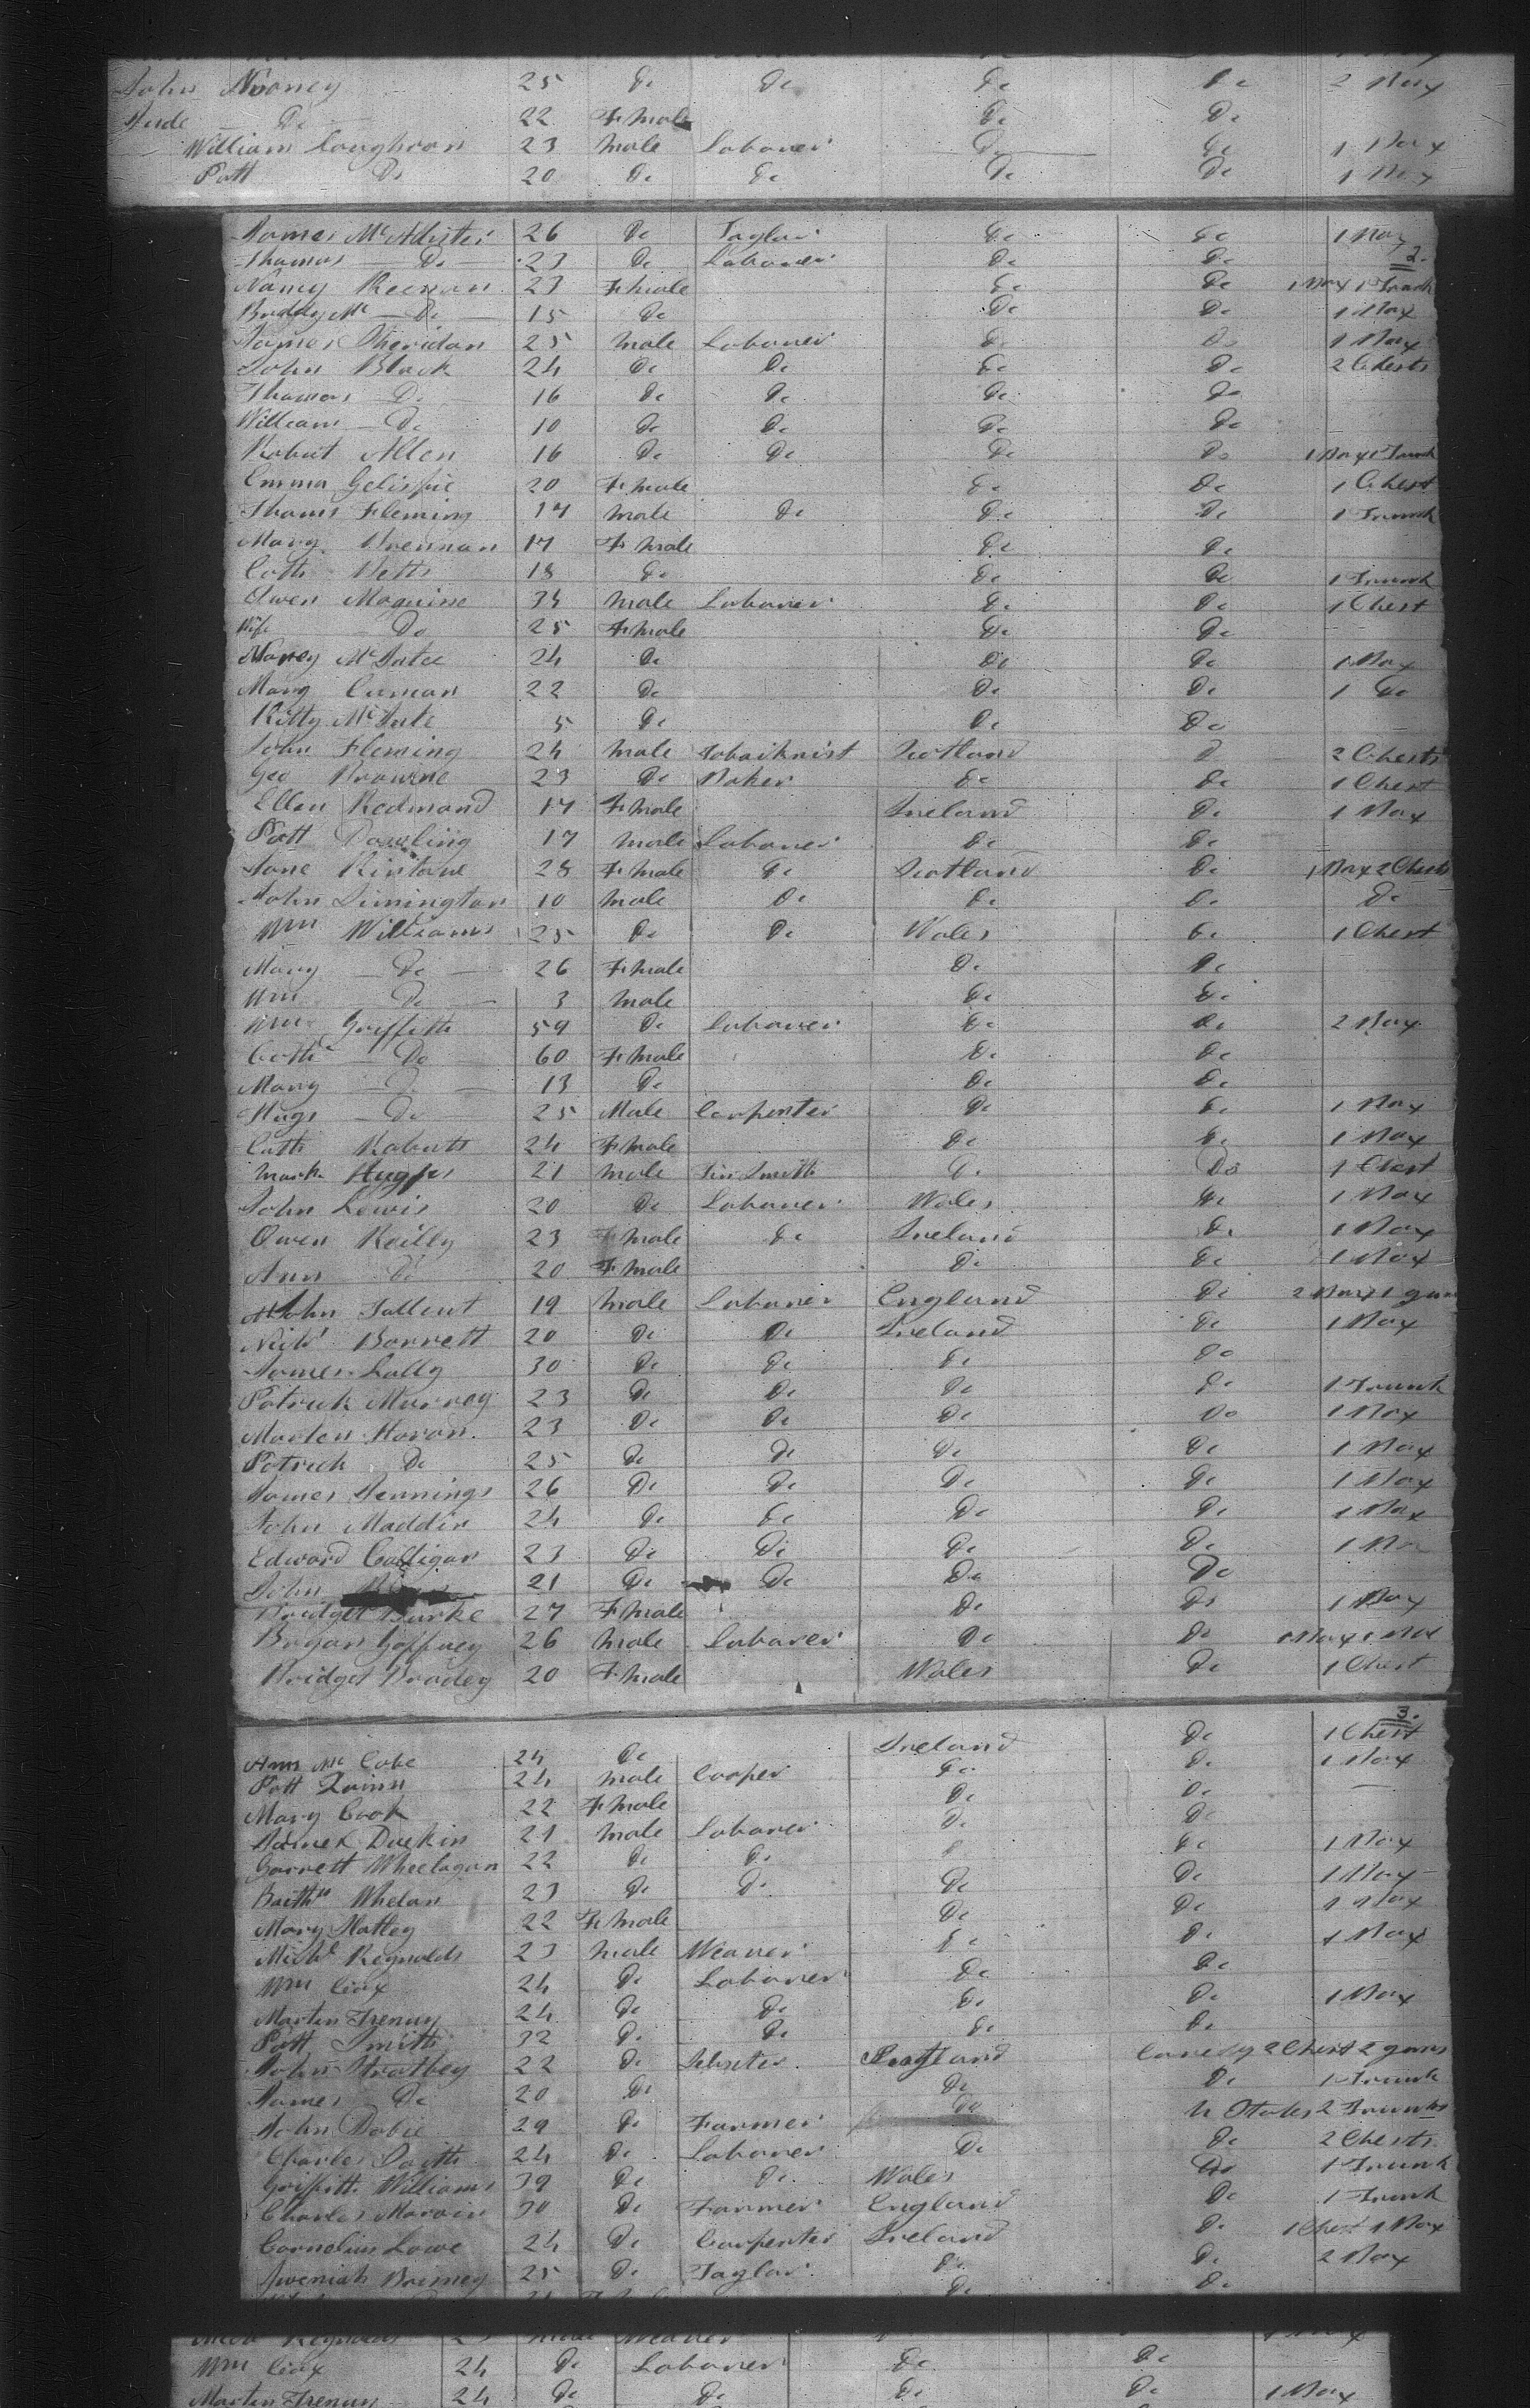 John Mooney 25 Do Do Do Do 2 Box
Do 22 Female Do Do
William Coughran 23 Male Labourer Do Do 1 Box
Patt Do 20 Do Do Do Do 1 Box
James McAlister 26 Do Taylor Do Do 1 Box
2.
Thomas Do 23 Do Labourer Do Do
Nancy Keenan 23 Female Do Do 1 Box 1 Trunk
Biddy Mc Do 15 Do Do Do 1 Box
James Sheridan 25 Male Labourer Do Do 1 Box
John Black 24 Do Do Do Do 2 Chests
Thomas Do 16 Do Do Do Do
William Do 10 Do Do Do Do
Robert Allen 16 Do Do Do Do 1 Box 1 Trunk
Emma Gelispie 20 Female Do Do 1 Chest
Thoms Fleming 17 Male Do Do Do 1 Trunk
Mary Brennan 17 Female Do Do
Cath Betts 18 Do Do Do 1 Trunk
Owen Maguire 34 Male Labourer Do Do 1 Chest
Wife Do 25 Female Do Do
Nancy McIntee 24 Do Do Do 1 Box
Mary Curnan 22 Do Do Do 1 Do
Kitty McInte 5 Do Do Do
John Fleming 24 Male Tobacknist Scotland D 2 Chests
Geo Browne 23 Do Baker Do Do 1 Chest
Ellen Redmond 17 Female Ireland Do 1 Box
Patt Dowling 17 Male Labourer Do Do
Jane Kintawe 28 Female Do Scotland Do 1 Box 2 Chests
John Simington 10 Male Do Do Do Do
Wm Williams 25 Do Do Wales Do 1 Chest
Mary Do 26 Female Do Do
Wm Do 3 Male Do Do
Wm Griffith 59 Do Labourer Do Do 2 Box
Cath Do 60 Female Do Do
Mary Do 13 Do Do Do
Hugh Do 25 Male Carpenter Do Do 1 Box
Cath Roberts 24 Female Do Do 1 Box
Mark Hughes 21 Male Tin Smith Do Do 1 Chest
John Lewis 20 Do Labourer Wales Do 1 Box
Owen Reilly 23 Male Do Ireland Do 1 Box
Ann Do 20 Female Do Do 1 Box
John Tallent 19 Male Labourer England Do 2 Box 1 gun
Nichs Barrett 20 Do Do Ireland Do 1 Box
James Lally 30 Do Do Do Do
Patrick Murray 23 Do Do Do Do 1 Trunk
Marten Horan 23 Do Do Do Do 1 Box
Patrick Do 25 Do Do Do Do 1 Box
James Jennings 26 Do Do Do Do 1 Box
John Maddin 24 Do Do Do Do 1 Box
Edward Calligan 23 Do Do Do Do 1 Box
John 21 Do Do Do Do
Bridget Burke 27 Female Do Do 1 Box
Bryan Gaffney 26 Male Labourer Do Do 1 Box 1 Bed
Bridget Bradey 20 Female Wales Do 1 Chest
3.
Ann McCabe 24 Do Ireland Do 1 Chest
Patt Quinn 24 Male Cooper Do Do 1 Box
Mary Cook 22 Female Do Do
James Duekin 21 Male Labourer Do Do
Garrett Wheelagan 22 Do Do Do Do 1 Box
Barthw Whelan 23 Do Do Do Do 1 Box
Mary Slatley 22 Female Do Do 1 Box
Michl Reynolds 23 Male Weaver Do Do 1 Box
Wm Ciax 24 Do Labourer Do Do
Martin Frenny 24 Do Do Do Do 1 Box
Patt Smith 32 Do Do Do Do
John Strathey 22 Do Scotland 2 Chest 2 guns
James Do 20 Do Do Do 1 Trunk
John Dobie 29 Do Farmer Do U States 2 Trunks
Charles Smith 24 Do Labourer Do Do 2 Chests
Griffith Williams 39 Do Do Wales Do 1 Trunk
Charles Marvin 30 Do Farmer England Do 1 Trunk
Cornelius Lowe 24 Do Carpenter Ireland Do 1 Chest 1 Box
Jeremiah Bremey 25 Do Taylor Do Do 2 Box
Do Do
Michl Reynolds 23 Male Weaver 1 Box
Wm Ciax 24 Do Labourer Do Do
Martin Frenny 24 Do Do Do Do 1 Box